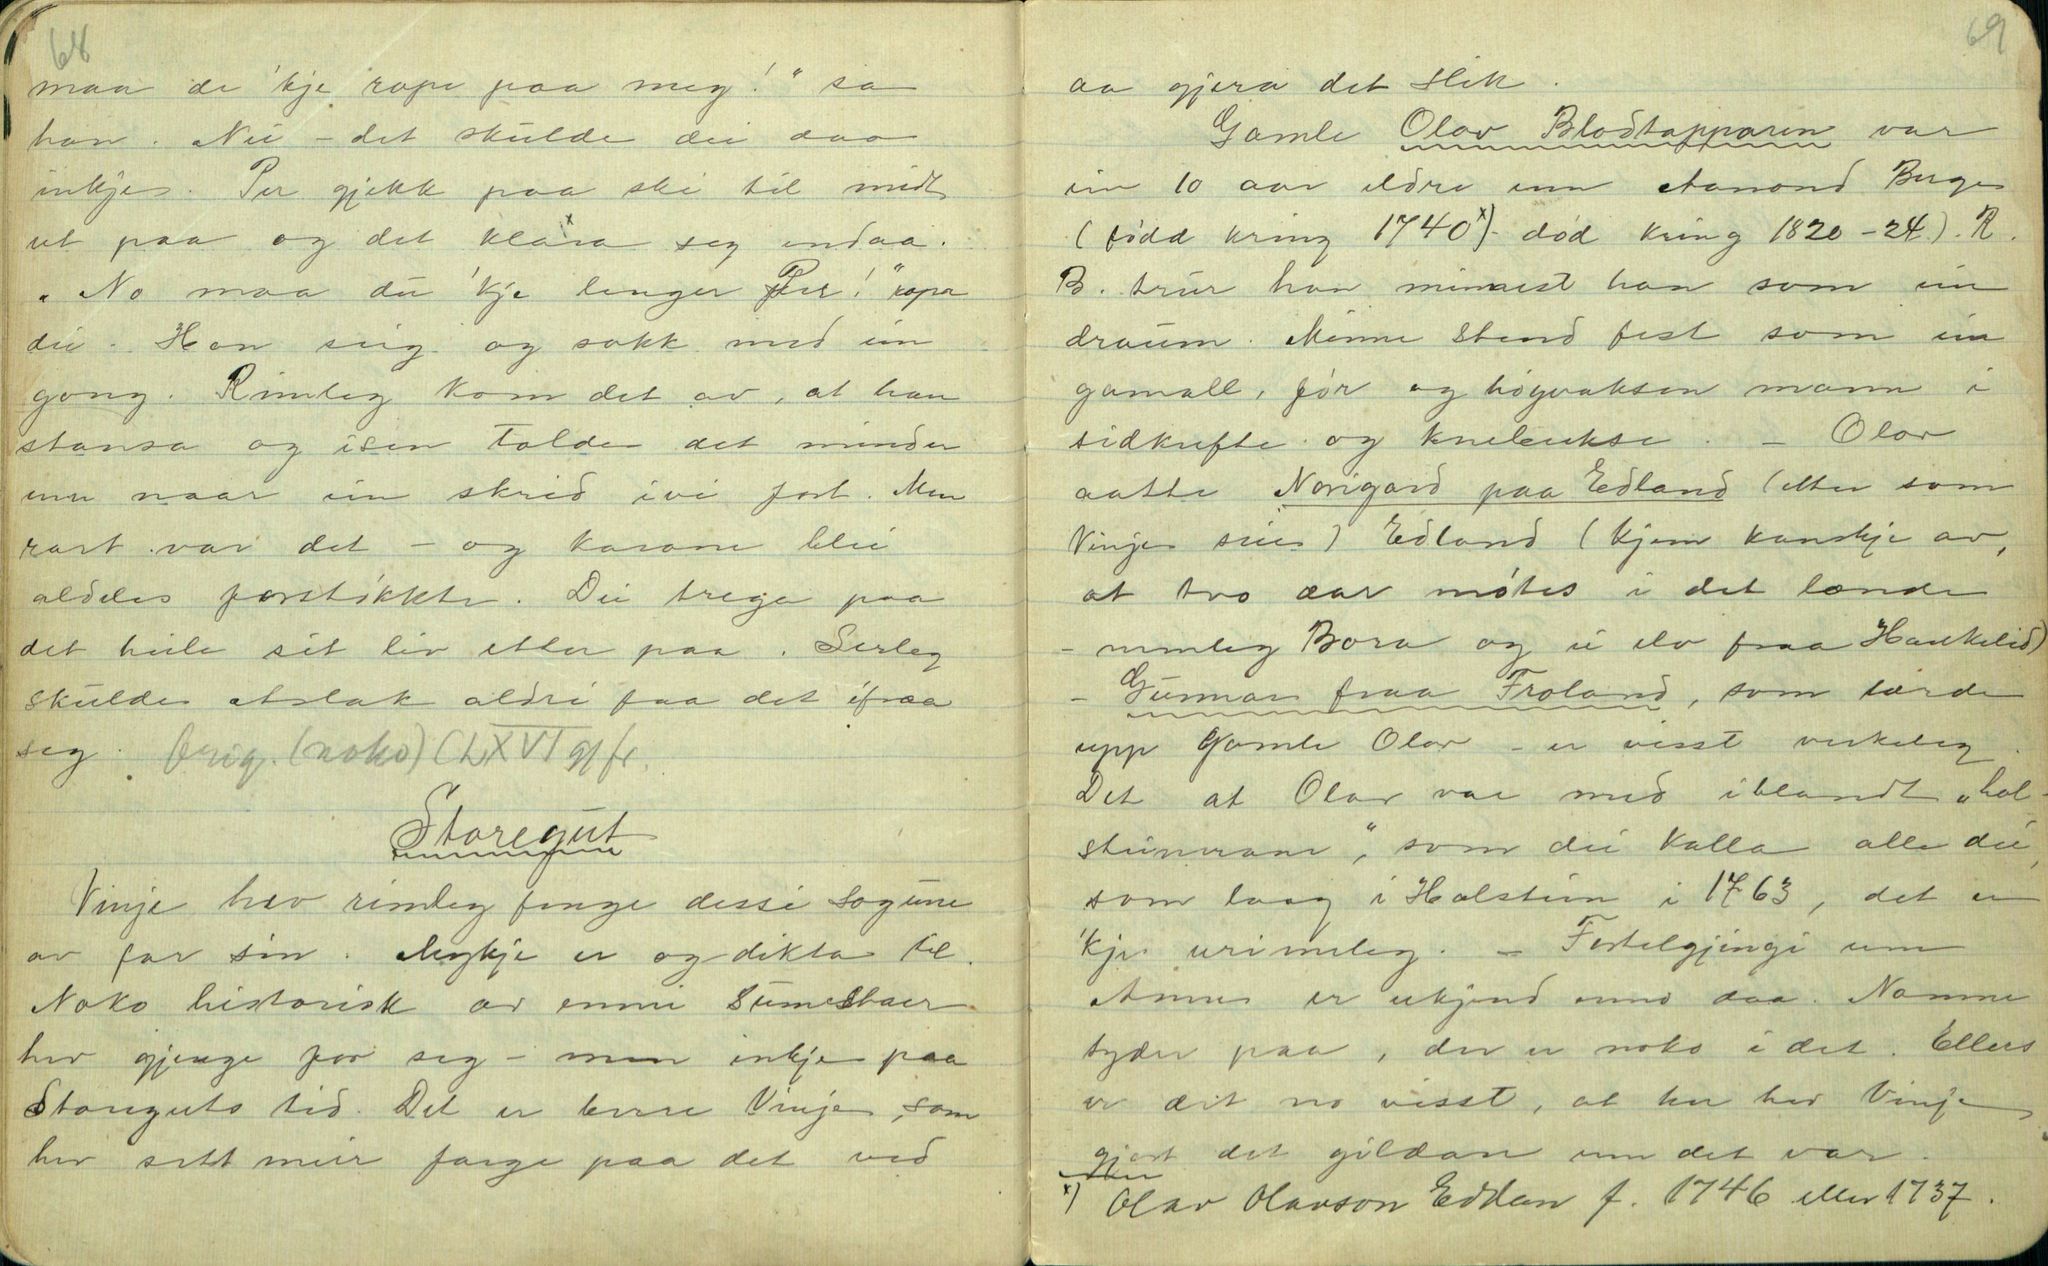 68
maa de 'kje rope paa meg!" sa
han. Nei - det skulde dei daa
inkje. Per gjekk paa ski til midt
ut paa og det klåra seg endaa.
"No maa du 'kje lenger Per!" ropa
dei. Han seig og sokk med ein
gong. Rimleg kom det av, at han
stansa og isen tolde det mindre
enn naar ein skreid ivi fort. Men
rart var det - og karane blei
aldeles forstøkkte. Dei trega paa
det heile sit liv etter paa. Serleg
skulde Aslak aldri faa det ifraa
seg. Orig. (noko) (LXVI gj fr.
Storegut
Vinje hev rimleg fenge desse sogune
av far sin. Mykje er og dikta til.
Noko historisk av emni sumestaer
hev gjenge for seg - men inkje paa
Storeguts tid. Det er berre Vinje, som
hev sett meir farge paa det ved
69
aa gjera det slik.
Gamle Olav Blodtapparen var
ein 10 aar eldre enn Aamond Berge
(født kring 1740 x) død kring 1820-24). R.
B. trur han minnest han som ein
draum. Minne stend fest som ein
gamall, før og høgvaksen mann i
sidkufte og knebukse. - Olav
aatte Norigard paa Edland (etter som
Vinje seie) Edland (kjem kanskje av,
at tvo æar møtes i det lænde
- nemleg Bora og ei elv fraa Haukelid)
- Gunnar fraa Froland, som lærde
upp Gamle Olav - er visst verkeleg.
Det at Olav var med iblandt "hol-
steinerane", som dei kalla alle dei,
som laag i Holstein i 1763, det er
'kje urimeleg. - Fortelgjingi um
Anne er ukjend enno daa. Namne
tyder paa, der er noko i det. Ellers
er det no visst, at her hev Vinje
gjort det gildare enn det var.
x) Olav Olavson Edland f. 1746 eller 1737.